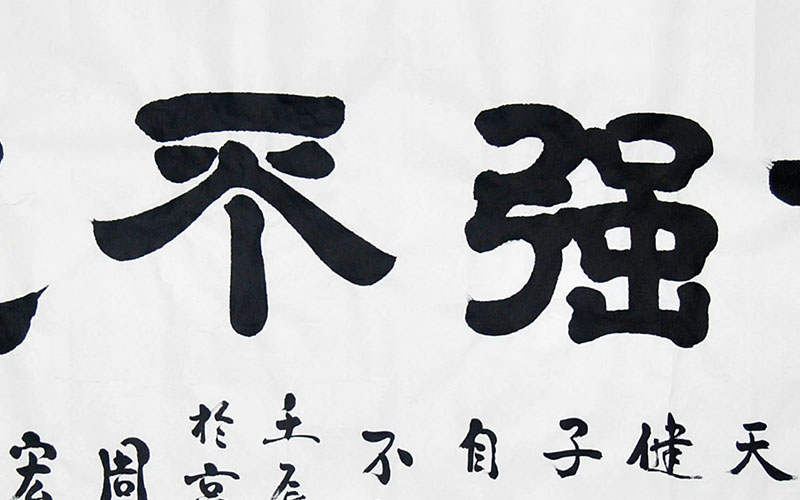 强不
天
健
子
自
不
壬辰
於京
周
宏